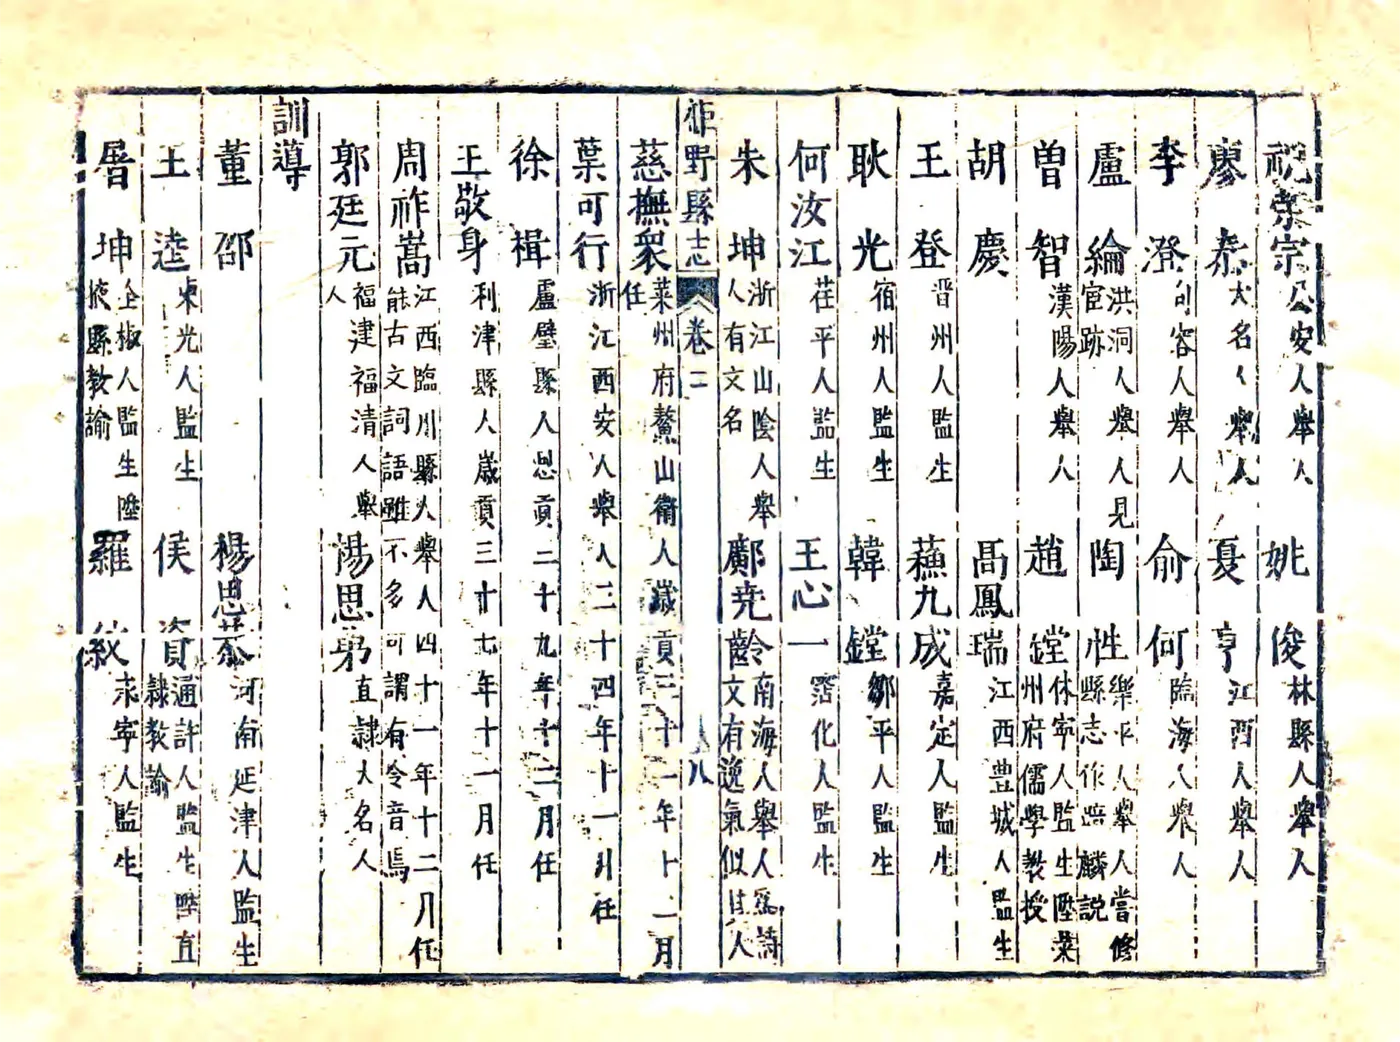 祝崇宗公安人舉人 姚俊林縣人舉人
廖泰大名人舉人 夏亨江西人舉人
李澄句容人舉人 俞何臨海人舉人
盧綸洪洞人舉人見宦跡 陶性樂平人舉人當修縣志作賠麟說
曾智漢陽人舉人 趙鏜休寧人監生陞萊州府儒學教授
胡慶 高鳳瑞江西豊城人監生
王登晋州人監生 蘓九成嘉定人監生
耿光宿州人監生 韓鏜鄒平人監生
何汝江茌平人監生 王心一霑化人監生
朱坤浙江山陰人舉人有文名 鄺尭齡南海人舉人爲詩文有逸氣似其人
鉅野縣志 卷二 八
慈撫衆萊州府鰲山衛人歲貢三十一年十一月任
葉可行浙江西安人舉人二十四年十一月任
徐楫盧璧縣人恩貢二十九年十二月任
王敬身利津縣人歲貢三十七年十一月任
周祚嵩江西臨川縣人舉人四十一年十二月任能古文詞語雖不多可謂有令音焉
郭廷元福建福清人舉人 湯思勇直隸大名人
訓導
董邵 楊思泰河南延津人監生
王逵東光人監生 侯資通許人監生陞直隸教諭
屠坤全椒人監生陞掖縣教諭 羅紋永寧人監生